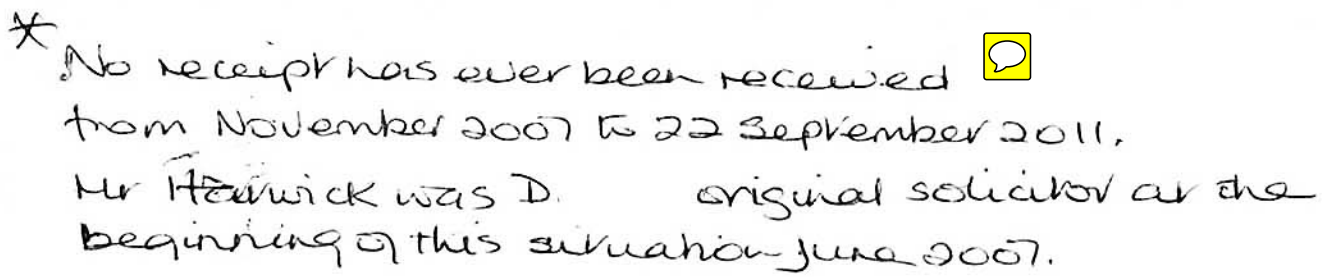 * No receipt has ever been received
from November 2007 to 22 September 2011.
Mr was D. original solicitor at the
beginning of this situation June 2007.